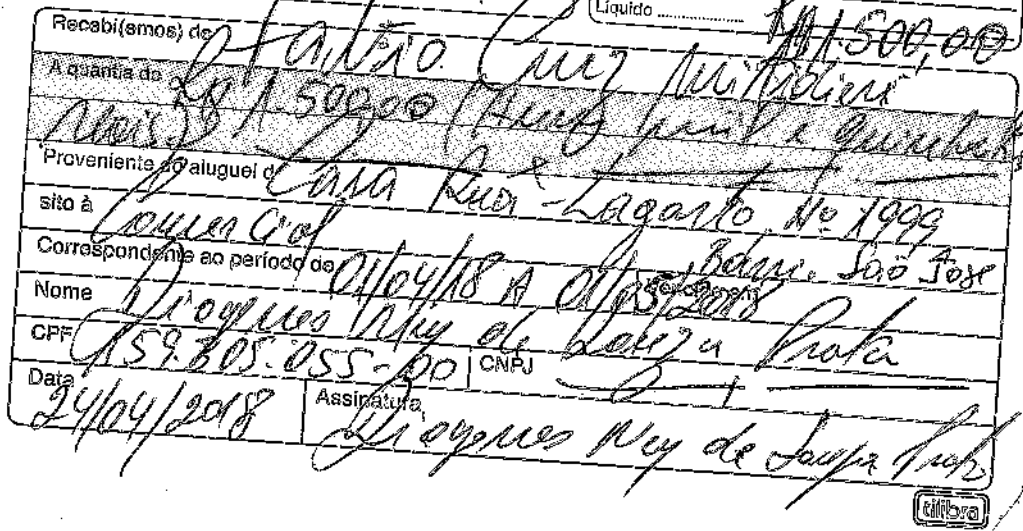 Líquido .......... R$ 1.500,00
Recebi(emos) de Fabião Cruz
A quantia de R$ 1.500,00 (Hum mil e quinhentos
Reais)
Proveniente do aluguel de Casa Rua - Lagarto Nº 1999
sito à Comercial, Bairro São José
Correspondente ao período de 01/04/18 A 01/05/2018
Nome Diogenes Ney de Souza Prata
CPF 159.305.055-00 CNPJ
Data 24/04/2018 Assinatura Diogenes Ney de Souza Prata
tilibra